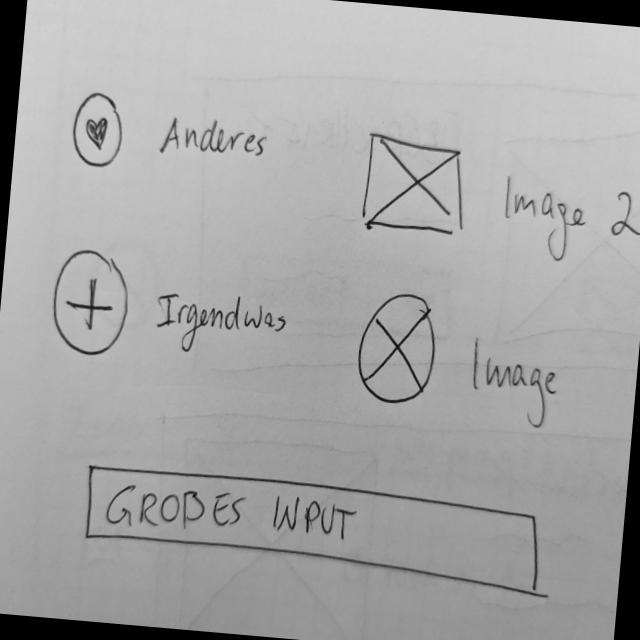 Anderes
Image 2
Irgendwas
Image
GROßES INPUT